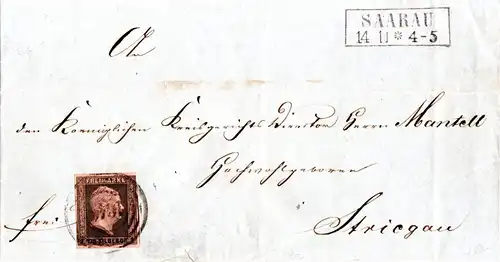 SAARAU
14 11 * 4-5
An
den Koeniglichen Kreisgerichts Director Herrn Mantell
Hochwohlgeboren
FREIMARKE
frei
Striegau
SILBERGR